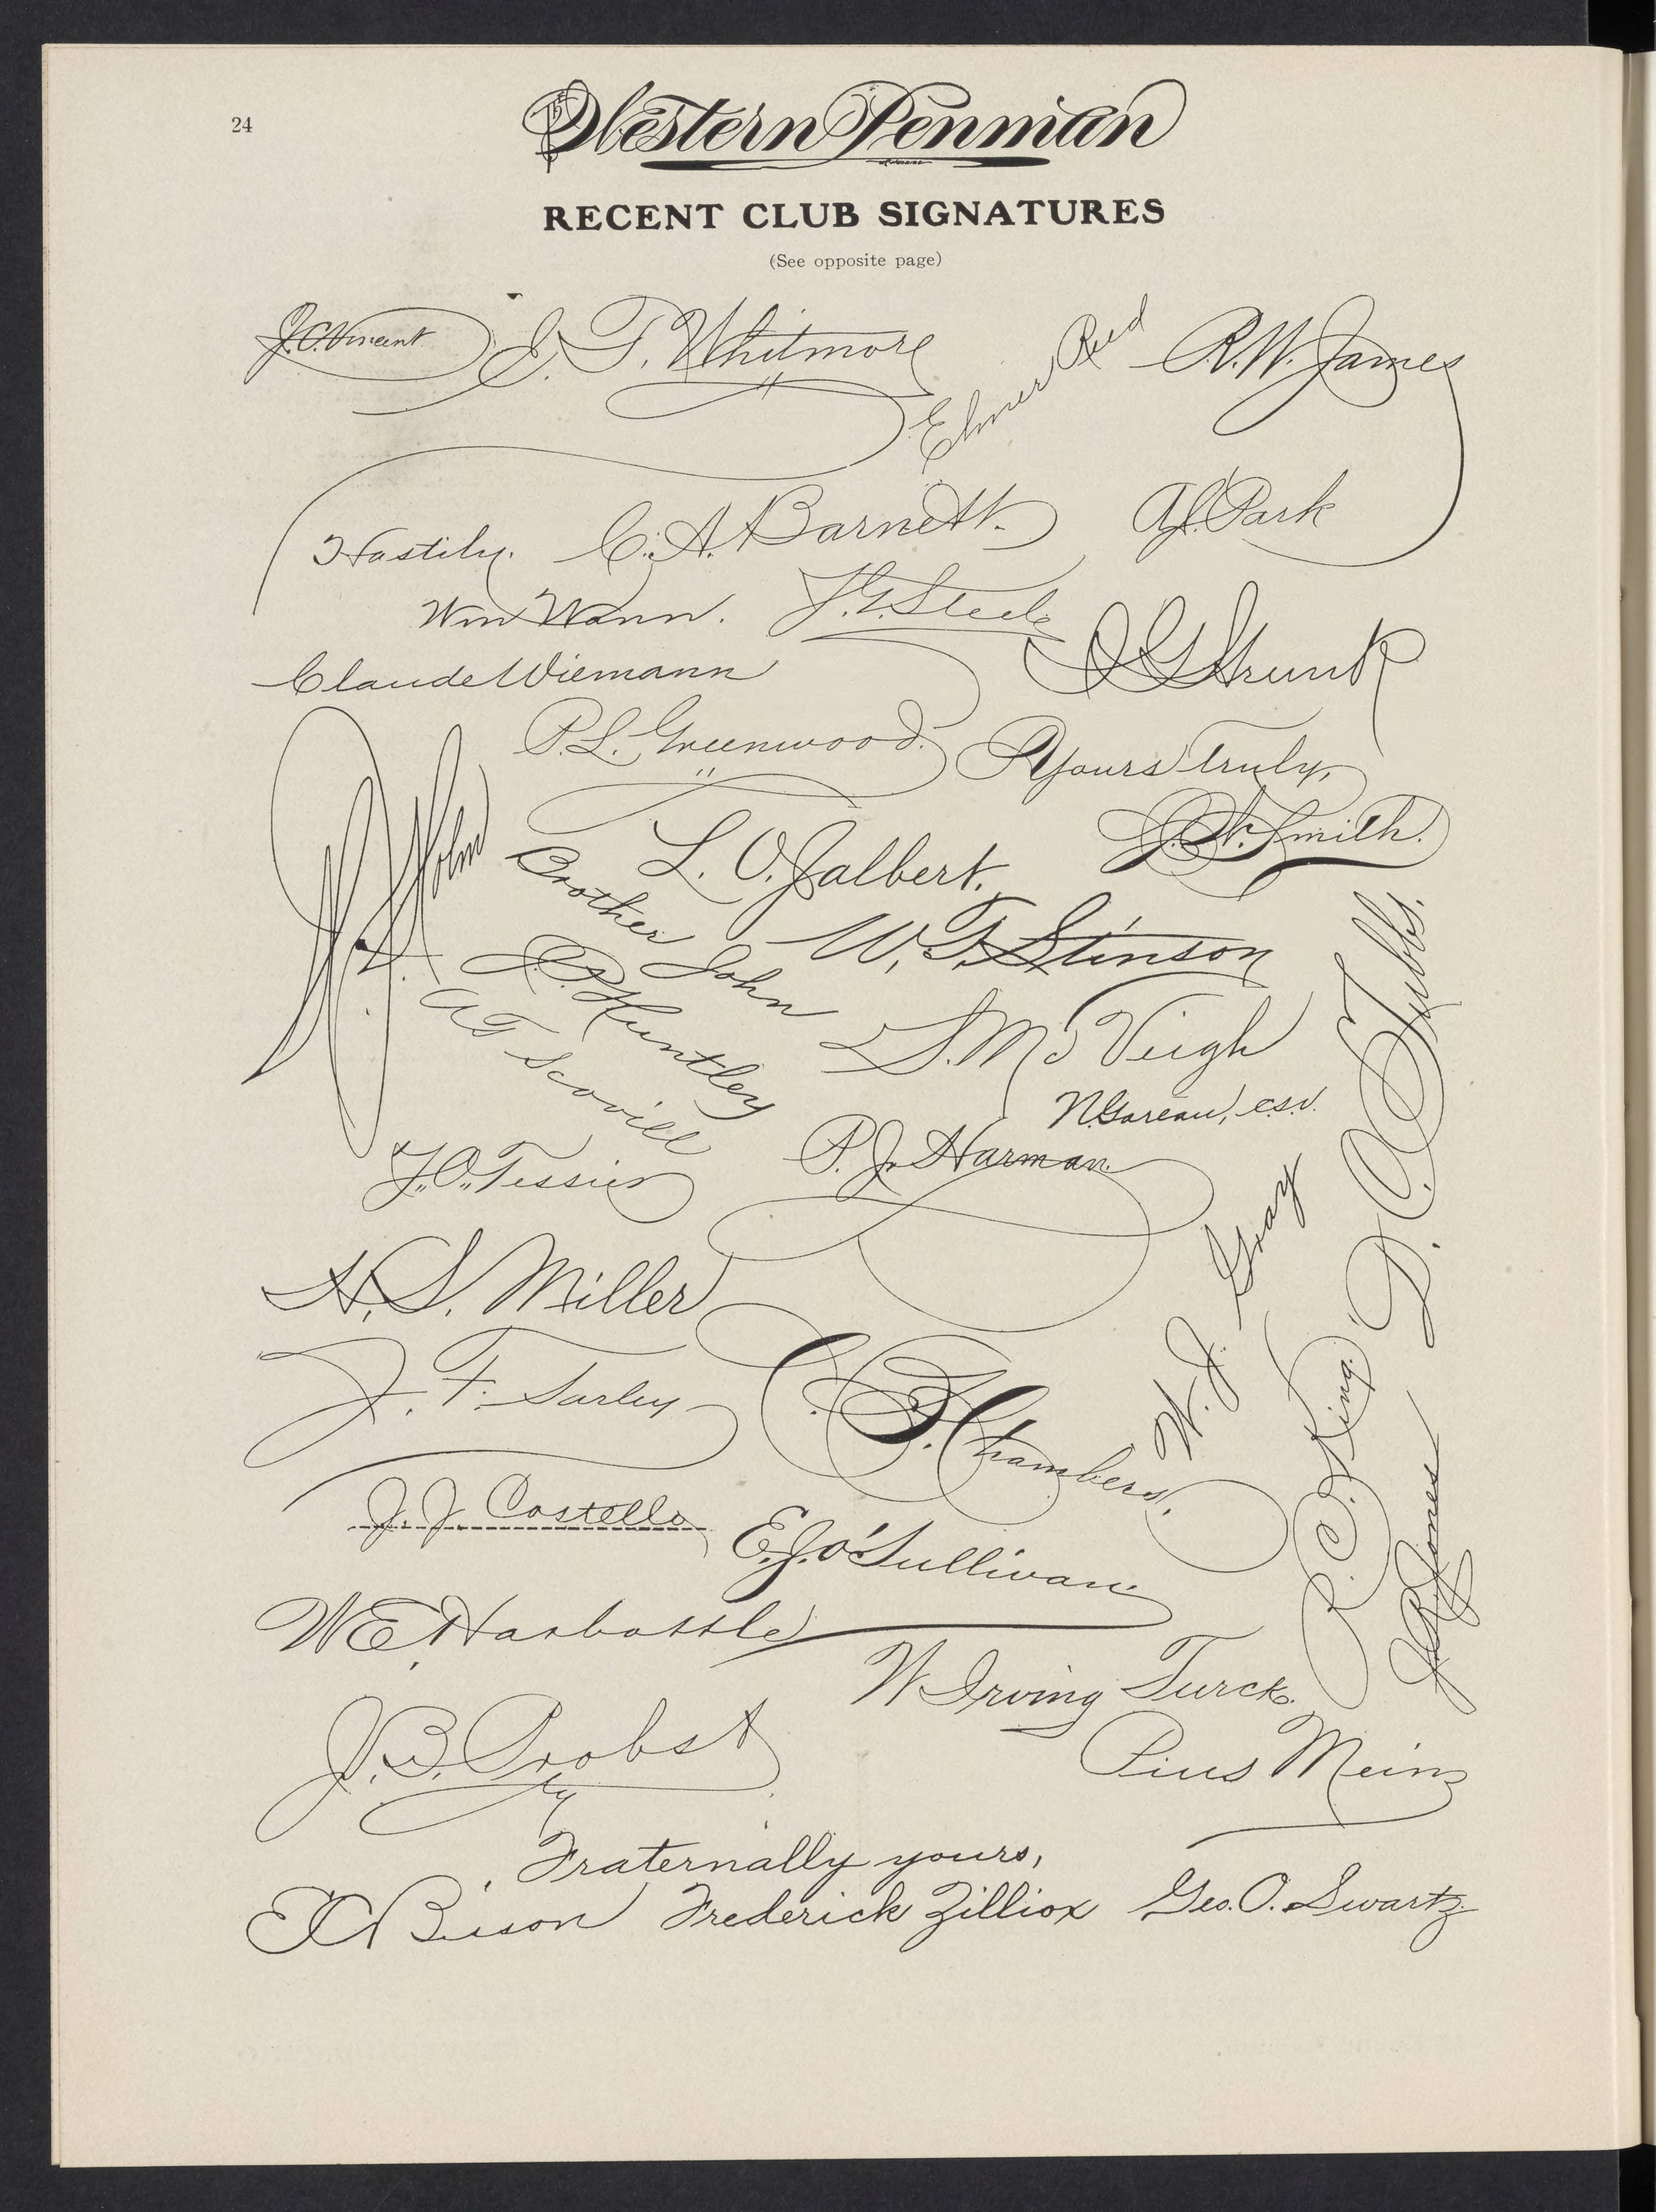 24
The Western Penman
RECENT CLUB SIGNATURES
(See opposite page)
J.C. Vincent
J. T. Whitmore
Elmer Reed
R.W. James
Hastily.
C. A. Barnett.
A.J. Park
Wm Wann.
J.G. Steele
O G Strunk
Claude Wiemann
P.L. Greenwood.
Yours truly,
J.N. Smith.
Holm
L. O. Jalbert.
Brother John
W. T. Stinson
Huntley
A T Scovill
S. McVeigh
N. Gareau, c.s.v.
J.O. Tessier
P. J. Harman.
D. C. Tubbs.
W. J. Gray
H. S. Miller
J. F. Sarley
Chambers.
R. C. King.
Jones
J. J. Costello
E.J. O'Sullivan
W E. Harbottle
W Irving Turck.
J. B. Probst
Pius Meinz
Fraternally yours,
Frederick Zilliox
Geo. O. Swartz